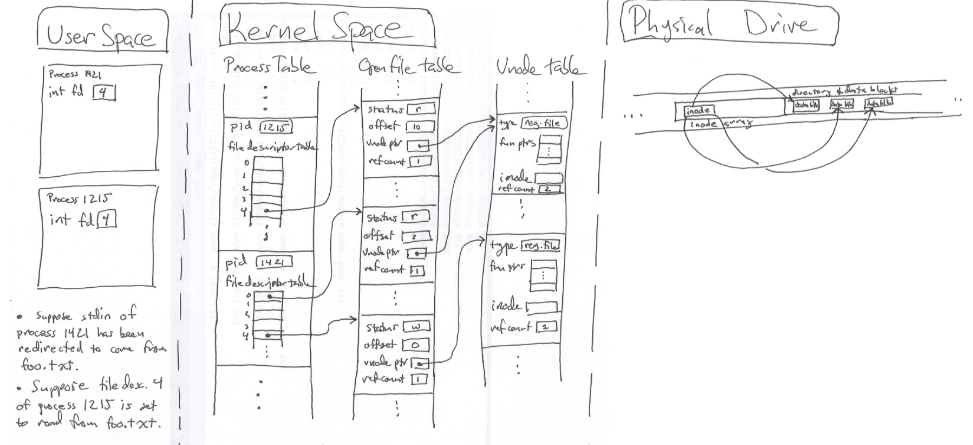 User Space
Process 1421
int fd 4
Process 1215
int fd 4
• Suppose stdin of
process 1421 has been
redirected to come from
foo.txt.
• Suppose file desc. 4
of process 1215 is set
to read from foo.txt.
Kernel Space
Process Table
pid 1215
file descriptor table
0
1
2
3
4
pid 1421
file descriptor table
0
1
2
3
4
Open file table
status r
offset 10
vnode ptr
ref count 1
status r
offset
vnode ptr
ref count 1
status w
offset 0
vnode ptr
ref count 1
Vnode table
type reg. file
fun ptrs
inode
ref count 2
type reg. file
fun ptrs
inode
ref count 1
Physical Drive
directory & data blocks
inode
data blk
data blk
data blk
inode array